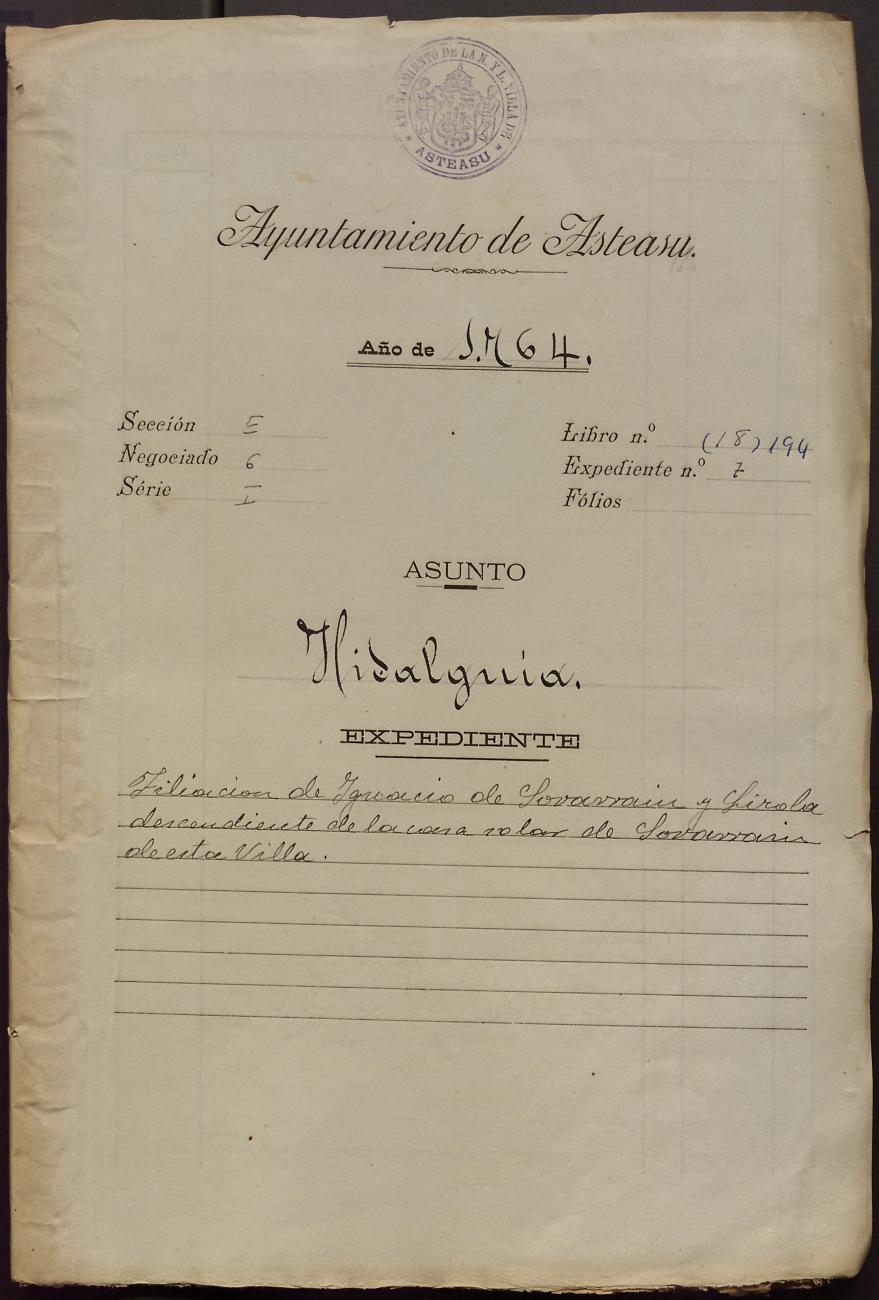 AYUNTAMIENTO DE LA N. Y L. VILLA DE
* ASTEASU *
Ayuntamiento de Asteasu.
Año de 1.764.
Sección E
Negociado 6
Série I
Libro n.º (18) 194
Expediente n.º 7
Fólios
ASUNTO
Hidalguia.
EXPEDIENTE
Filiacion de Ignacio de Sorarrain y Lizola
descendiente de la casa solar de Sorarrain
de esta Villa.